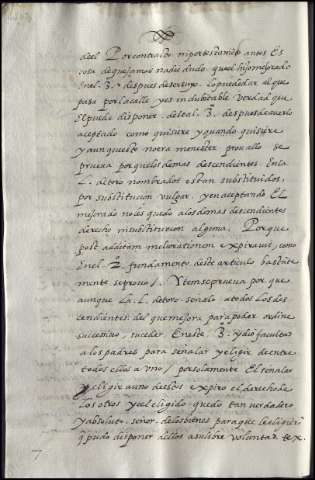 del Por contrato ni por testamento antes Es
cosa de que jamas nadie dudo que el hijo mejorado
En el 3º despues de suyo lo puede dar al que
pasa por la calle y es indubitable verdad que
El puede disponer del tal 3º despues de averlo
aceptado como quisiere y quando quisiere
y aunque este no era menester provallo se
prueva porque los demas descendientes En la
L. de toro nombrados estan substituidos,
por substitucion vulgar, y en aceptando El
mejorado no les quedo a los demas descendientes
derecho ni substitucion alguna. Porque
post aditam meliorationem expiravit, como
En el 2º fundamento deste articulo bastante
mente se provo /. Yten se prueva por que
aunque la L. de toro señalo a todos los des
cendientes del que mejora para poder ordine
successivo, suceder En este 3º y dio facultad
a los padres para señalar y eligir de entre
todos ellos a uno / pero solamente El señalar
y eligir a uno dellos expiro el derecho de
los otros y el eligido quedo tan verdadero
y absoluto señor de los bienes para que le eligieron
q pudo disponer dellos a su libre voluntad tex.